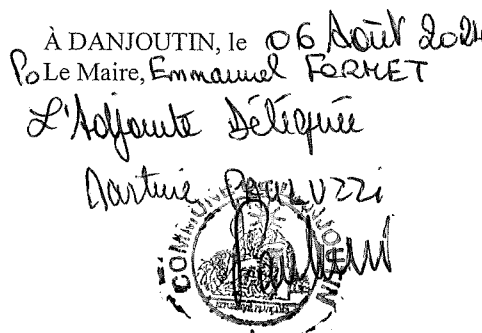 À DANJOUTIN, le 06 Août 2024
Po Le Maire, Emmanuel FORMET
L'Adjointe Déléguée
Martine PAULUZZI
COMMUNE DE DANJOUTIN